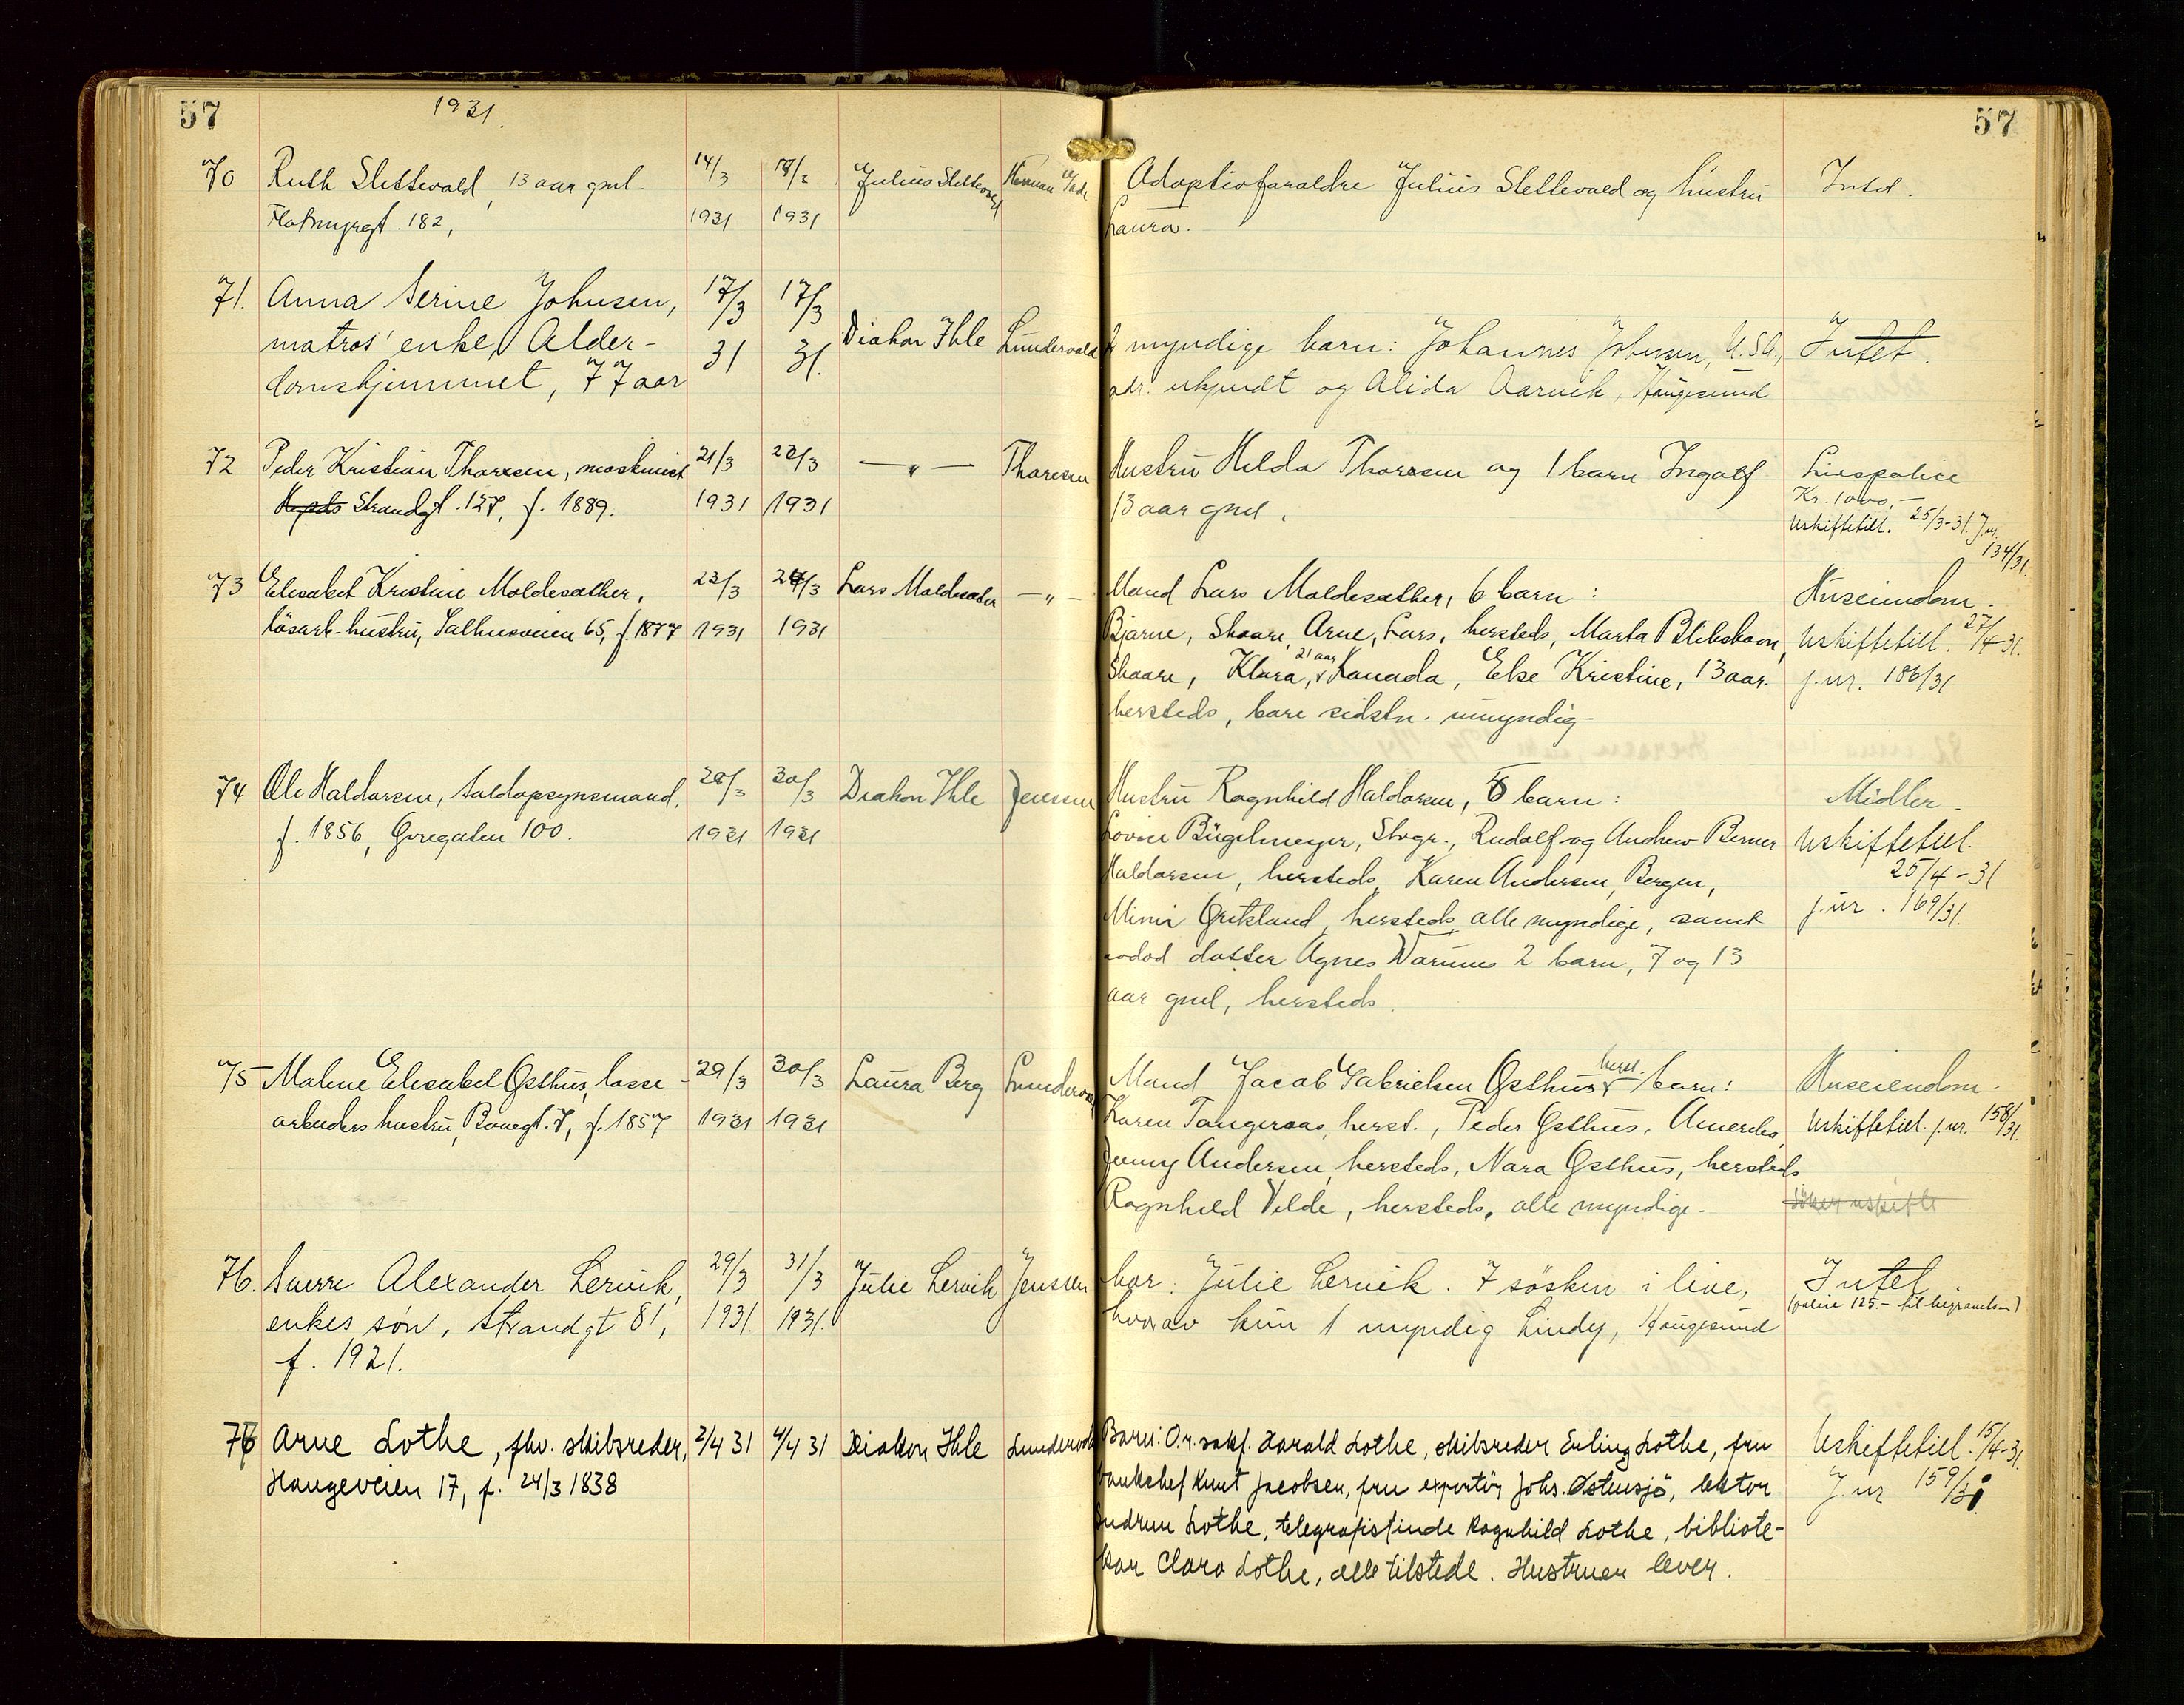 57
1931.
57
70 Ruth Slettevold, 13 aar gml. 14/3 19/2 Julius Slettevold Herman Adoptivforældre Julius Slettevold og hustru Intet.
Flotmyrgt. 182, 1931 1931 Laura.
71. Anna Serine Johnsen, 17/3 17/3
matros' enke, Alder- 31 31. Diakon Ihle Lundevold myndige barn: Johannes Johnsen, U.S.A., Intet.
domshjemmet, 77 aar adr. ukjendt og Alida Aarvik, Haugesund
72 Peder Kristian Thoresen, maskinist 21/3 23/3 —"— Thoresen Hustru Helda Thoresen og 1 barn Ingolf Livspolice
Strandgt. 127, f. 1889. 1931 1931 13 aar gml. Kr. 1000,-
Uskiftetill. 25/3-31. J.nr.
134/31.
73 Elisabet Kristine Moldesæther, 23/3 24/3 Lars Moldesæter —"— Mand Lars Moldesæther, 6 barn: Huseiendom.
løsarb. hustru, Salhusveien 65, f. 1877 1931 1931 Bjarne, Skaare, Arne, Lars, hersteds, Marta Blikshavn, Uskiftetill. 27/4-31.
Skaare, Klara, 21 aar, Kanada, Else Kristine, 13 aar. j.nr. 186/31
hersteds, bare sidstn. umyndig-
74 Ole Haldorsen, toldopsynsmand, 28/3 30/3 Diakon Ihle Jenssen Hustru Ragnhild Haldorsen, 6 barn: Midler.
f. 1856, Øvregaten 100. 1931 1931 Lovise Bügelmeyer, Stvgr., Rudolf og Andrew Berner Uskiftetill.
Haldorsen, hersteds, Karen Andersen, Bergen, 25/4-31
Mimi Grikland, hersteds, alle myndige, samt j.nr. 169/31.
avdød datter Agnes 2 barn, 7 og 13
aar gml, hersteds.
75 Malene Elisabet Østhus, losse- 29/3 30/3 Laura Berg Lundevold Mand Jacob Gabrielsen Østhus, herst. barn: Huseiendom.
arbeiders hustru, Banegt. 7, f. 1857 1931 1931 Karen Tangeraas, herst., Peder Østhus, Amerika, Uskiftetill. j.nr. 158/31.
Jenny Andersen, hersteds, Nara Østhus, hersteds
Ragnhild Velde, hersteds, alle myndige. søker uskifte
76. Sverre Alexander Lervik, 29/3 31/3 Julie Lervik Jenssen Mor: Julie Lervik. 7 søsken i live, Intet
enkes søn, Strandgt 81, 1931. 1931. hvorav kun 1 myndig Lindy, Haugesund (police 125.- til begravelsen)
f. 1921.
77 Arne Lothe, fhv. skibsreder, 2/4 31 4/4 31 Diakon Ihle Lundevold Barn: O.r.sakf. Harald Lothe, skibsreder Erling Lothe, fru Uskiftetill. 15/4-31.
Haugeveien 17, f. 24/3 1838 bankchef Knut Jacobsen, fru exportør Johs. Østensjø, lektor J.nr 159/31
Gudrun Lothe, telegrafistinde Ragnhild Lothe, bibliote-
kar Clara Lothe, alle tilstede. Hustruen lever.